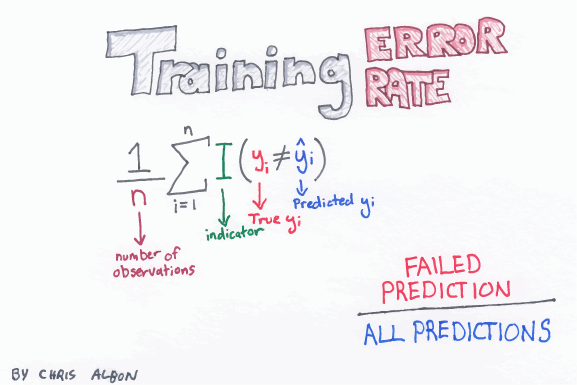 Training ERROR RATE
1/n n Σ i=1 I (yi ≠ ŷi)
number of observations
indicator
True yi
Predicted yi
FAILED
PREDICTION
ALL PREDICTIONS
BY CHRIS ALBON